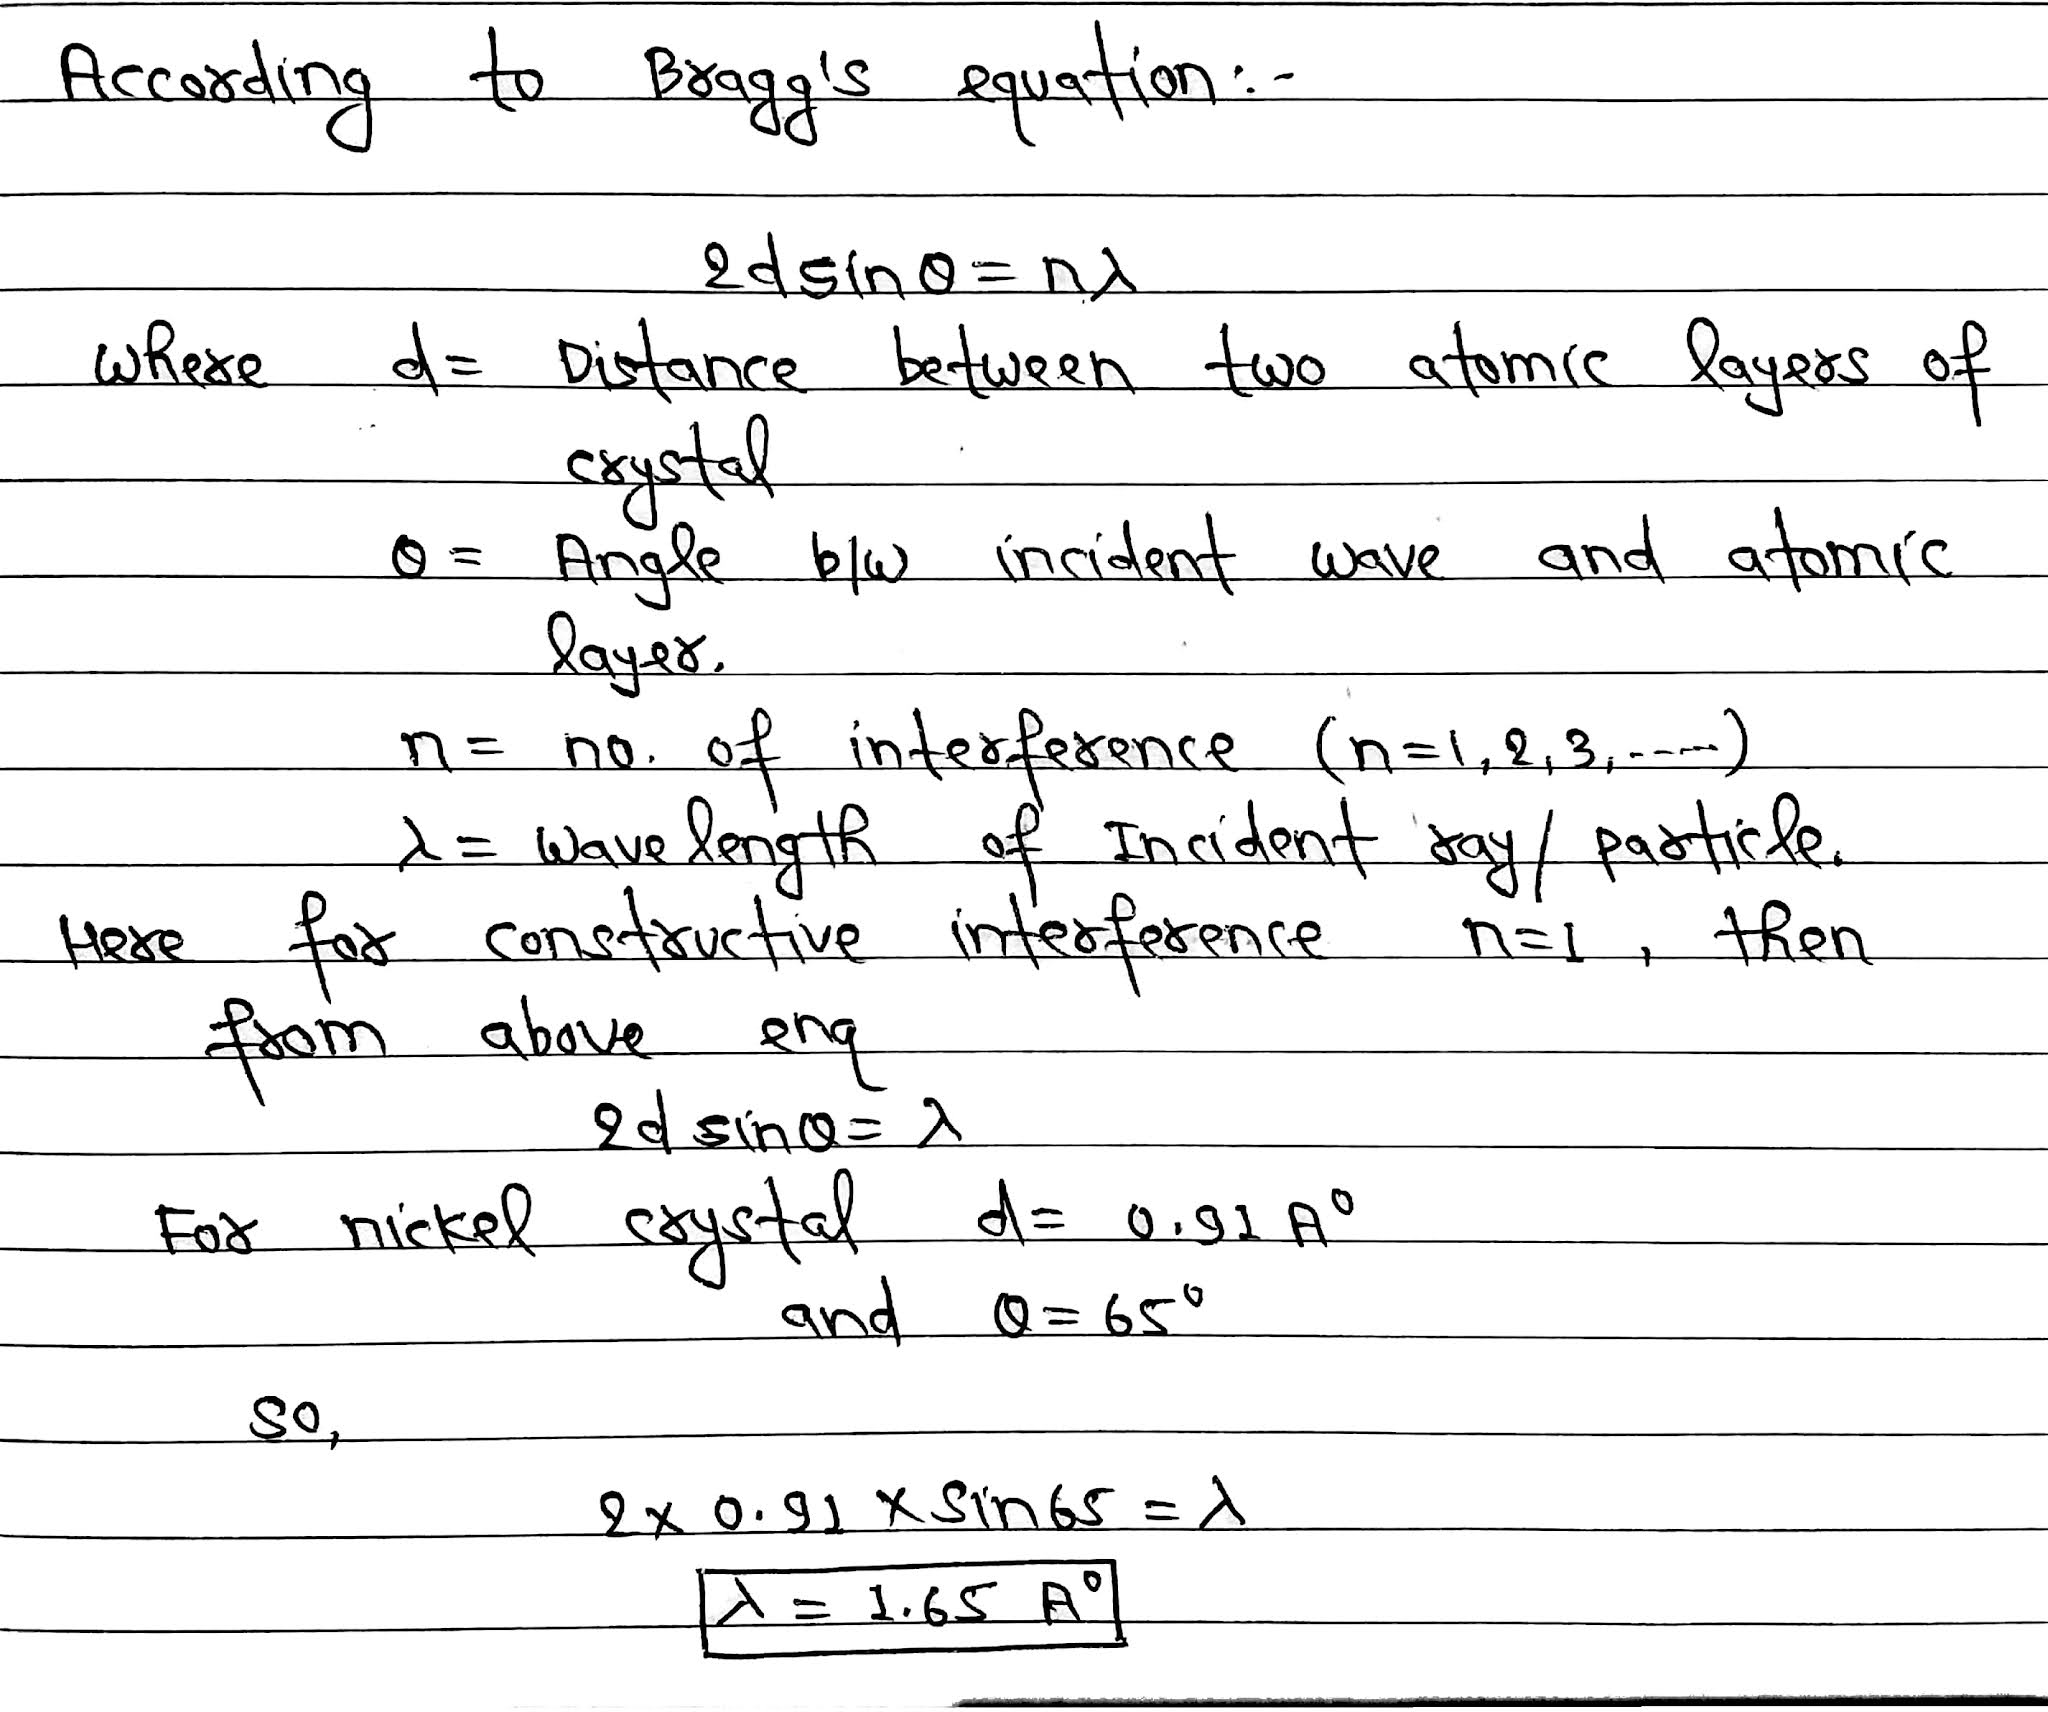 According to Bragg's equation:-
2d sin θ = nλ
where d = Distance between two atomic layers of
crystal
θ = Angle b/w incident wave and atomic
layer.
n = no. of interference (n=1,2,3,-----)
λ = wavelength of Incident ray/particle.
Here for constructive interference n=1, then
from above enq
2d sin θ = λ
For nickel crystal d = 0.91 A°
and θ = 65°
so,
2 x 0.91 x Sin 65 = λ
λ = 1.65 A°